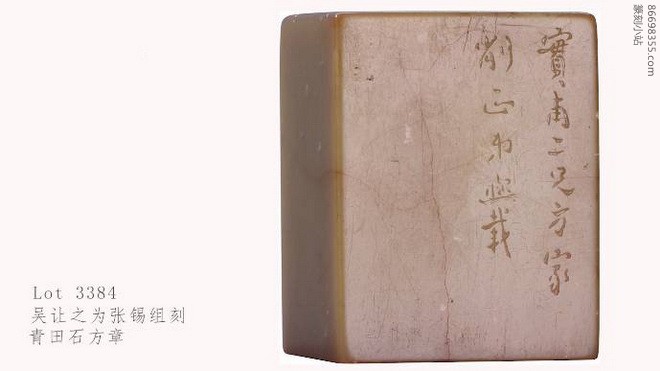 實甫二兄方家
削正弟熙載
Lot 3384
吴让之为张锡组刻
青田石方章
86698355.com
篆刻小站